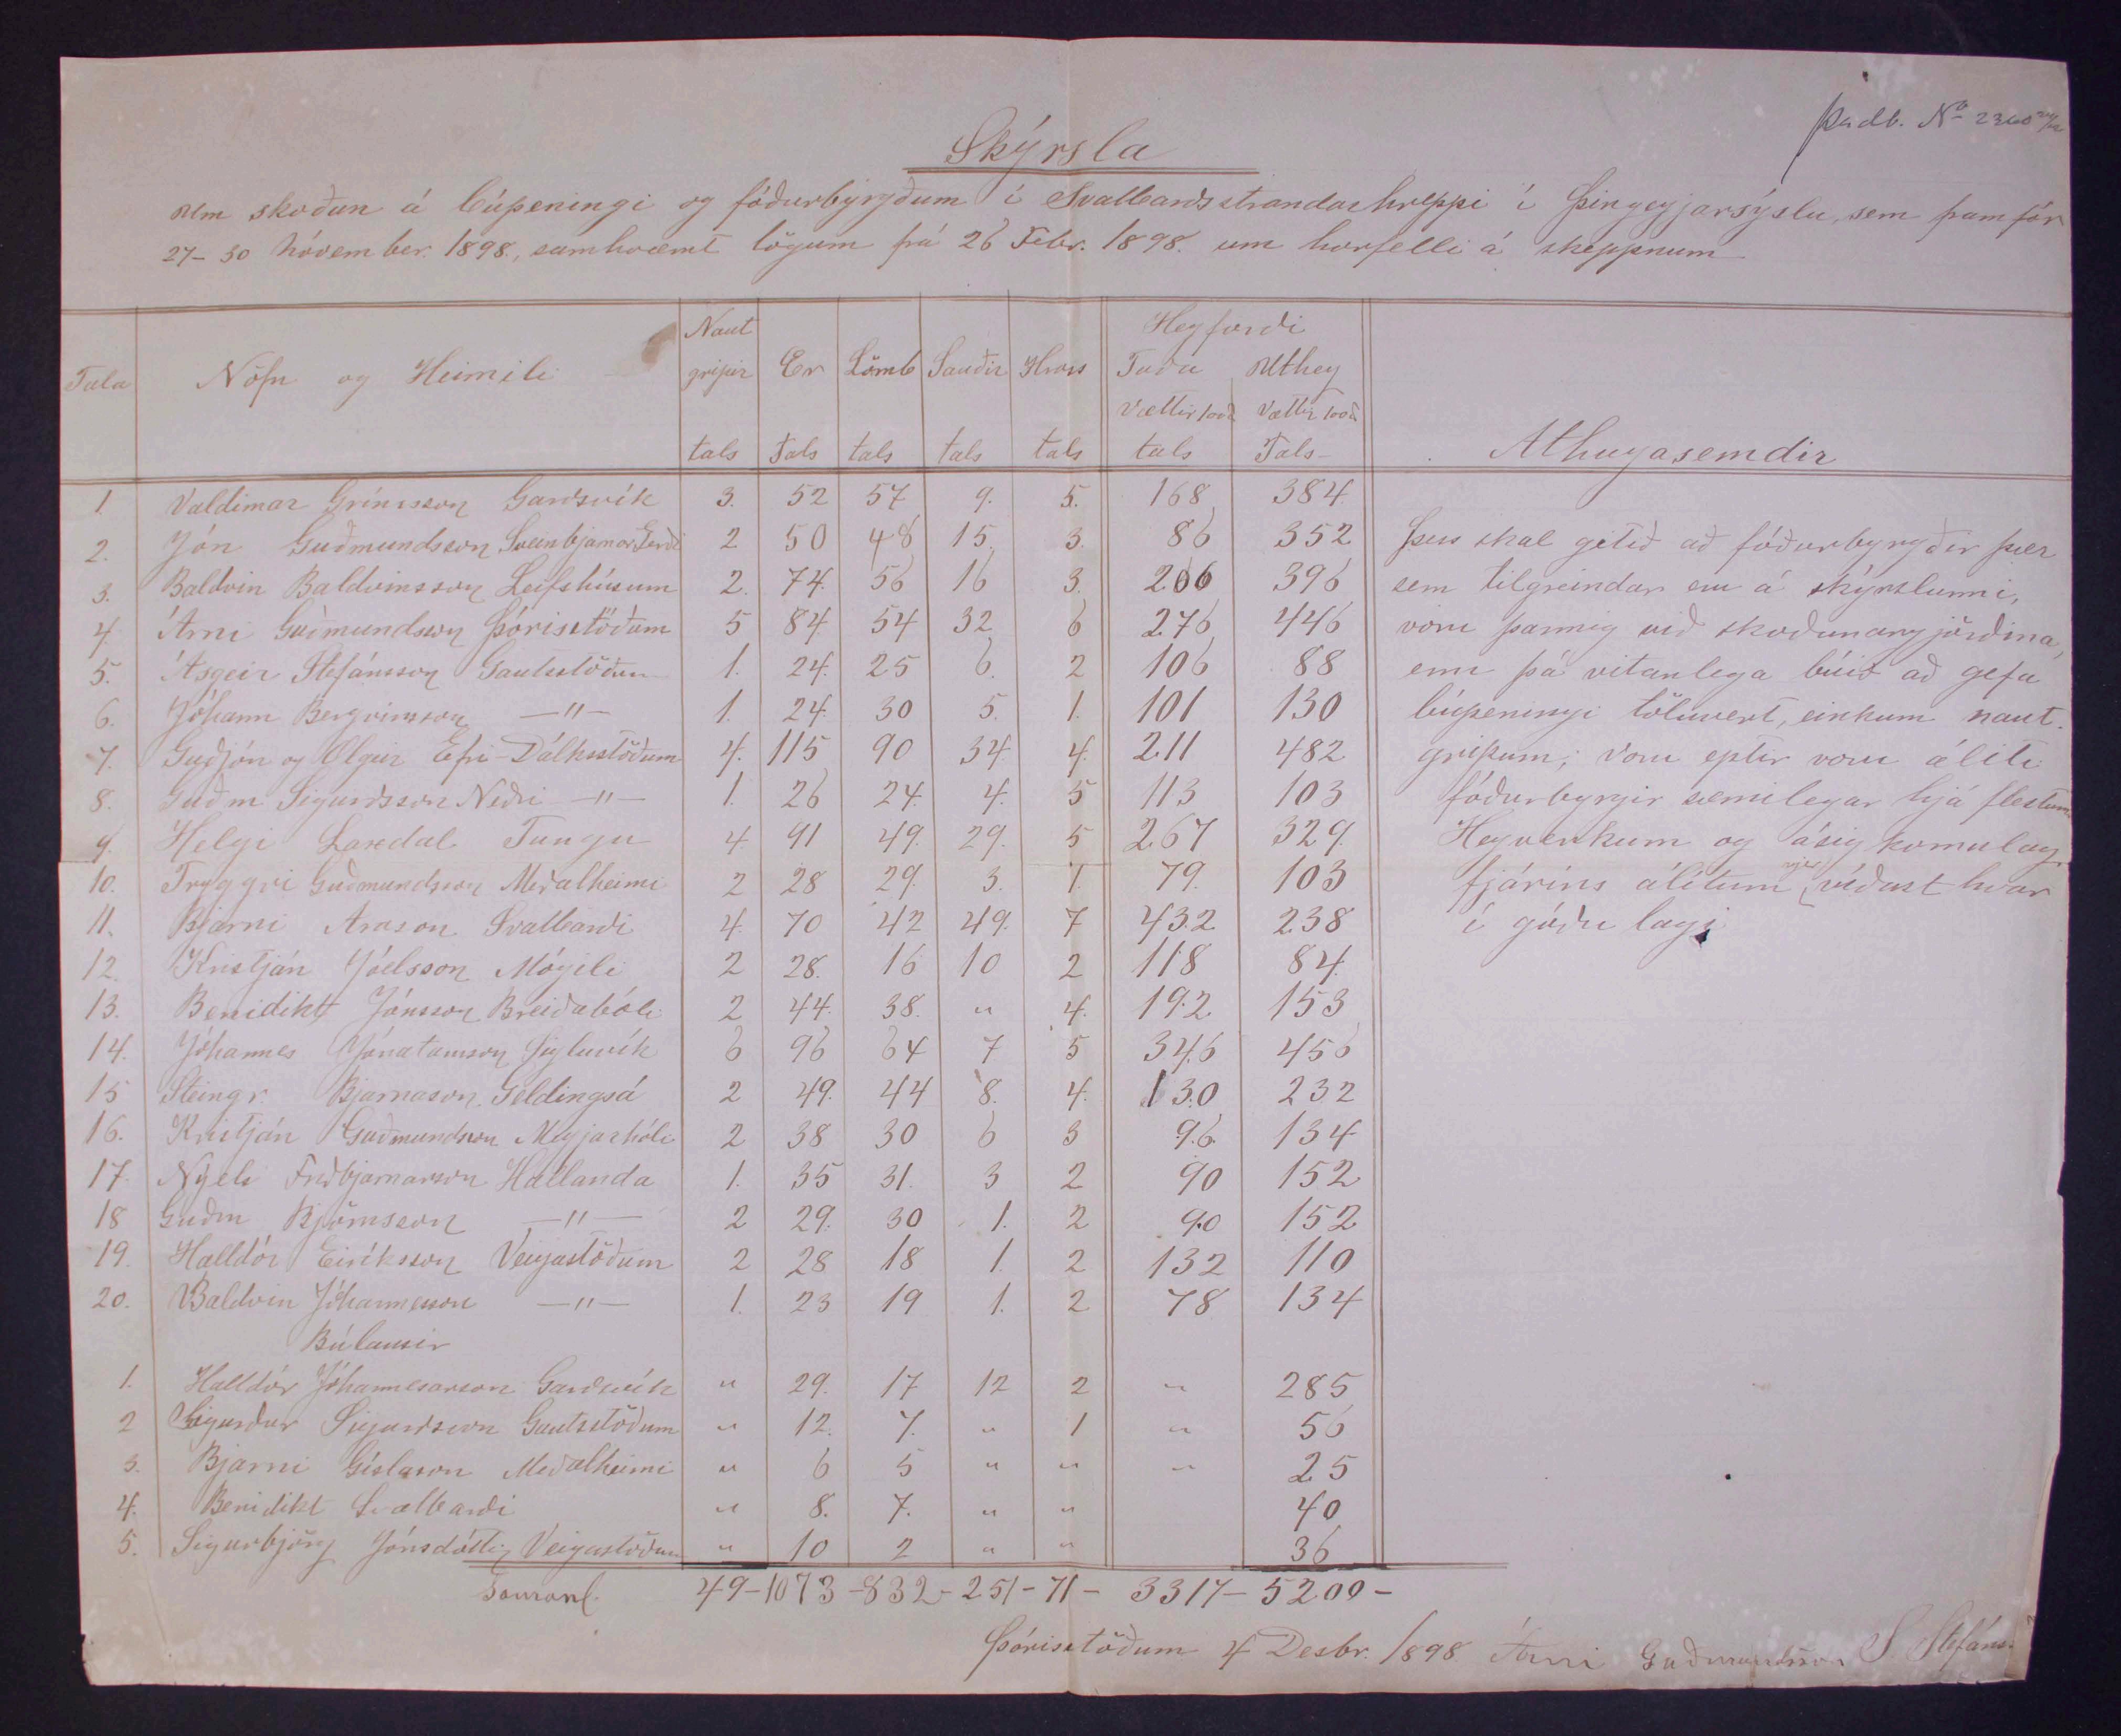 Þadb. No 2360
Skýrsla
um skoðun á búpeningi og fóðurbyrgðum í Svalbarðsstrandarhreppi í Þingeyjarsýslu, sem fram fór
27-30 Nóvember. 1898., samkvæmt lögum frá 26 Febr. 1898. um horfelli á skeppnum
Tala Nöfn og Heimili Naut gripir tals Ær Tals Lömb tals Sauðir tals Hross tals Heyforði Taða Vættir 100 ℔ tals Úthey Vættir 100 ℔ Tals- Athugasemdir
1. Valdimar Grímsson Garðsvík 3. 52 57 9. 5. 168 384
2. Jón Guðmundsson Sveinbjarnar Gerði 2 50 48 15. 3. 86 352
3. Baldvin Baldvinsson Leifshúsum 2. 74. 56 16 3. 206 396
4. Árni Guðmundsson Þórisstöðum 5 84 54 32 6 276 446
5. Ásgeir Stefánsson Gautsstöðum 1. 24. 25 6. 2 106 88
6. Jóhann Bergvinsson —"— 1. 24. 30 5. 1. 101 130
7. Guðjón og Olgeir Efri-Dálksstöðum 4. 115 90 34 4. 211 482
8. Guðm. Sigurðsson Neðri —"— 1. 26 24. 4. 5 113 103
9. Helgi Laxdal Tungu 4 91 49. 29. 5 267 329.
10. Tryggvi Guðmundsson Meðalheimi 2 28 29. 3. 1. 79. 103
11. Bjarni Arason Svalbarði 4. 70 42 49. 7 432 238
12. Kristján Jóelsson Mógili 2 28. 16 10 2 118 84.
13. Benidikt Jónsson Breiðabóli 2 44. 38. " 4. 192 153
14. Jóhannes Jónatansson Sigluvík 6 96 64 7 5 346 456
15 Steingr. Bjarnason Geldingsá 2 49. 44 8. 4. 130 232
16. Kristján Guðmundsson Meyjarhóli 2 38 30 6 3 96. 134
17. Níels Friðbjarnarson Hallanda 1. 35 31. 3 2 90 152
18 Guðm Björnsson —"— 2 29. 30 1. 2 90 152
19. Halldór Eiríksson Veigastöðum 2 28 18 1. 2 132 110
20. Baldvin Jóhannesson —"— 1. 23 19 1. 2 78 134
Búlausir
1. Halldór Jóhannesarson Garðsvík " 29. 17 12 2 " 285
2 Sigurður Sigurðsson Gautsstöðum " 12. 7. " 1 " 56
3. Bjarni Gíslason Meðalheimi " 6 5 " " " 25
4. Benidikt Svalbarði " 8. 7. " " 40
5. Sigurbjörg Jónsdóttir Veigastöðum " 10 2 " " 36
Samanl. 49-1073-832-251-71- 3317-5200-
Þess skal getið að fóðurbyrgðir þær
sem tilgreindar eru á skýrslunni,
voru þannig við skoðunargjörðina,
enn þá vitanlega búið að gefa
búpeningi töluvert, einkum naut-
gripum; voru eptir voru áliti
fóðurbyrgir sæmilegar hjá flestum
Heyverkum og ásigkomulag
fjárins álítum við víðast hvar
í góðu lagi
Þórisstöðum 4 Desbr. 1898 Árni Guðmundsson S. Stefáns.